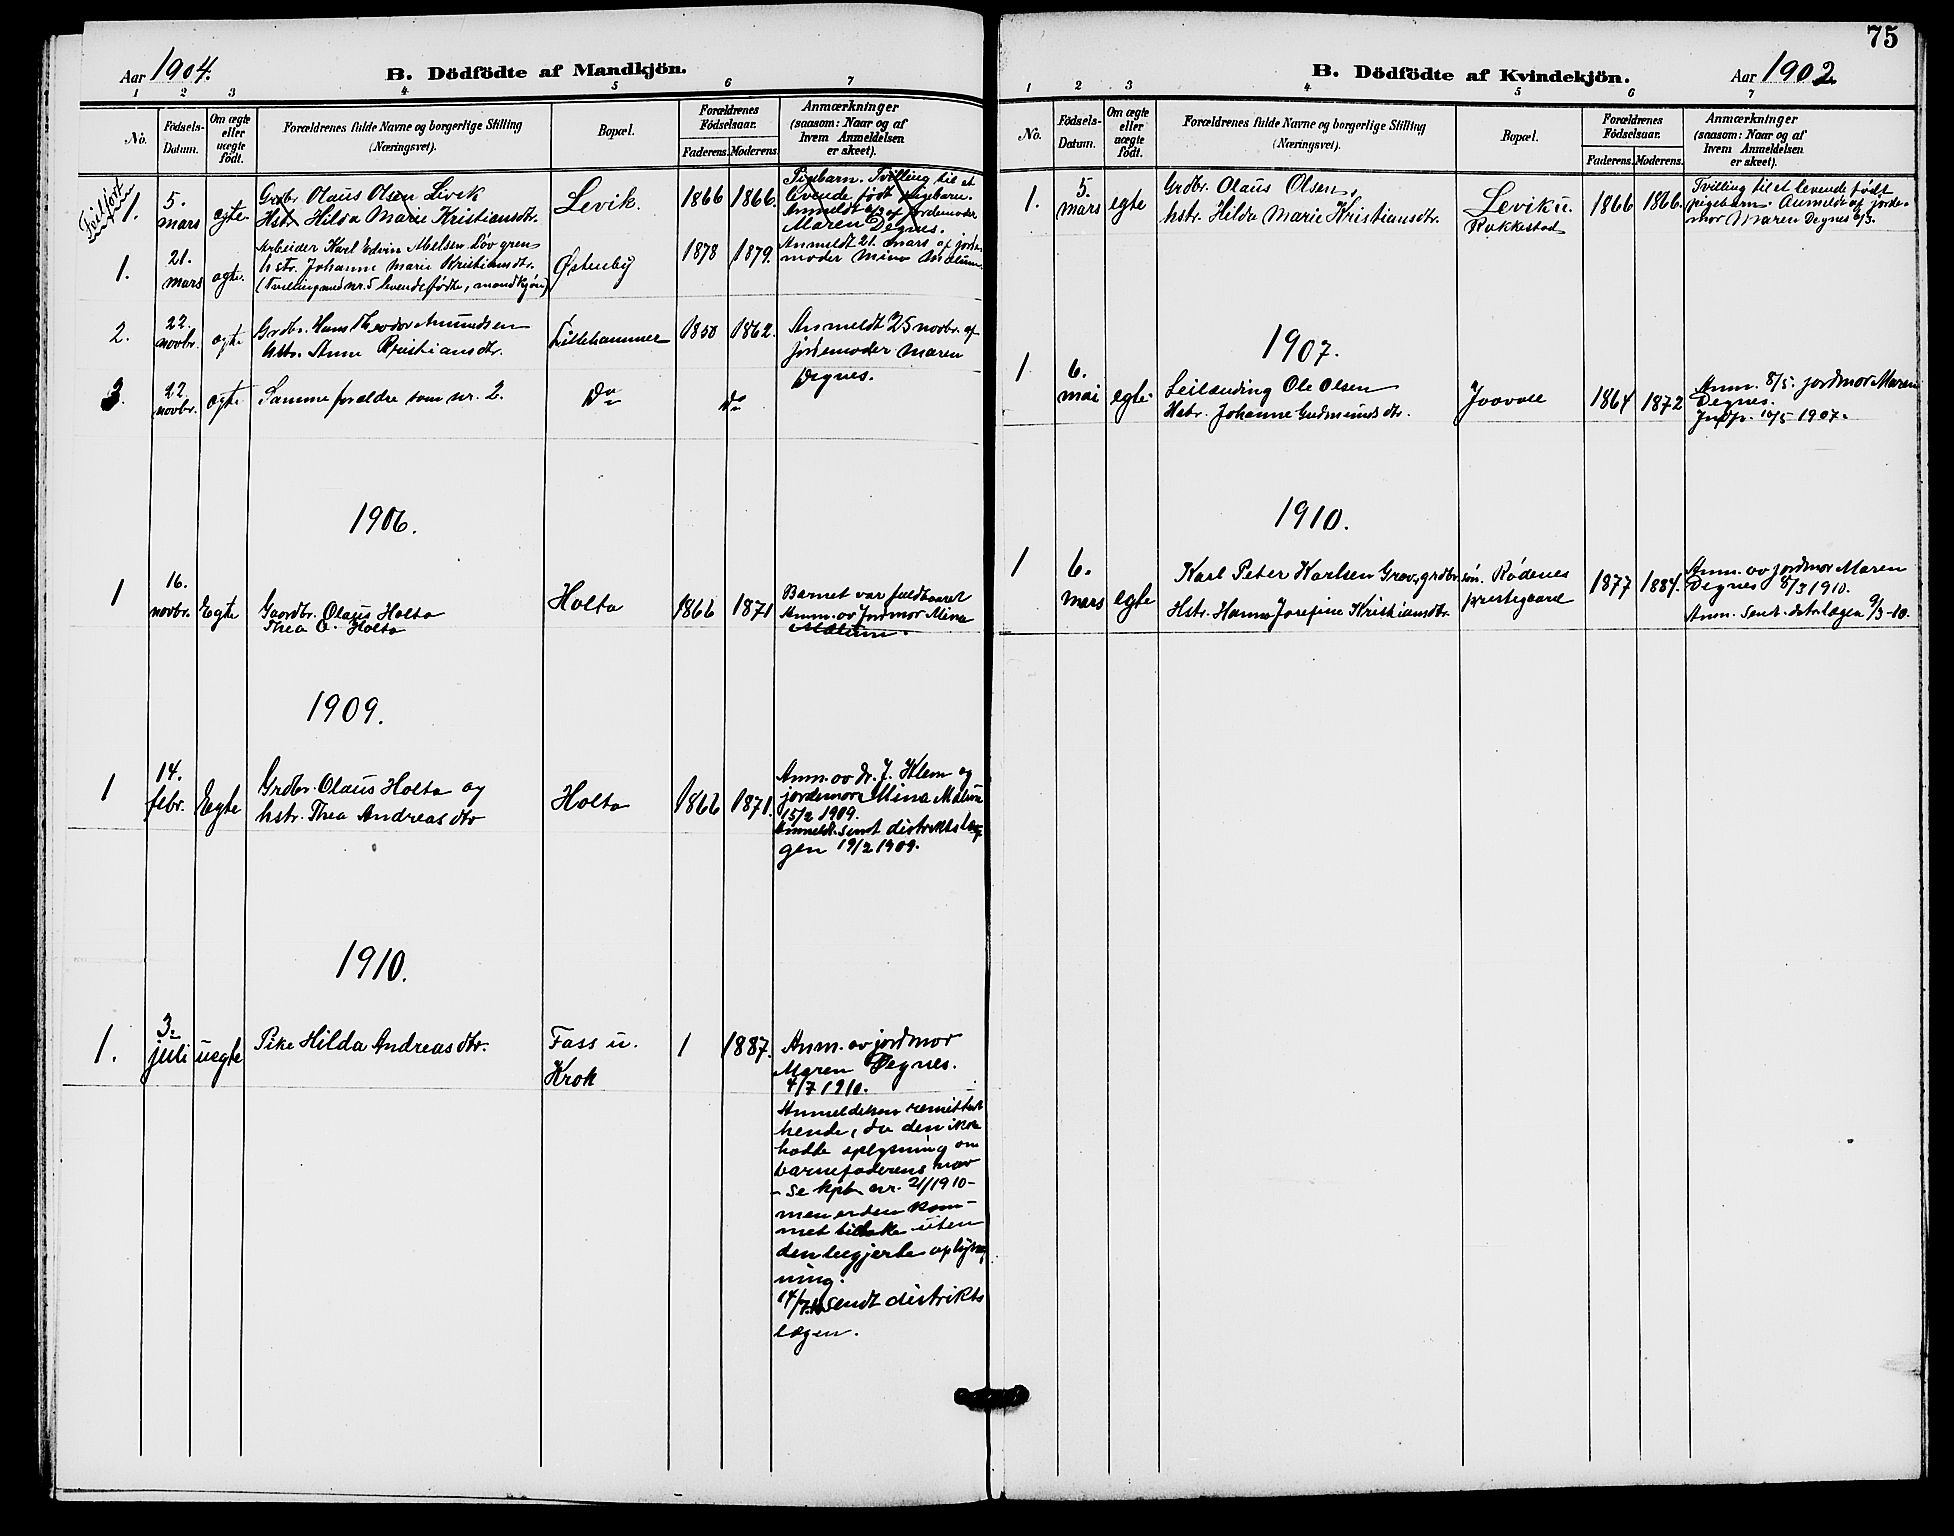 Aar 1904.
B. Dödfödte af Mandkjön.
1 2 3 4 5 6 7
No.
Födsels-
Datum.
Om ægte
eller
uægte
födt.
Forældrenes fulde Navne og borgerlige Stilling
(Næringsvei).
Bopæl.
Forældrenes
Födselsaar.
Faderens. Moderens.
Anmærkninger
(saasom: Naar og af
hvem Anmeldelsen
er skeet).
Feilført
1.
5.
mars
egte
Grdbr. Olaus Olsen Levik
Hstr. Hilda Marie Kristiansdtr.
Levik.
1866
1866.
Pigebarn. Tvilling til et
levende født pigebarn.
Anmeldt af jordemoder
Maren Degnes.
1.
21.
mars
egte.
Arbeider Karl Edvin Nielsen Løvgren
hstr. Johanne Marie Kristiansdtr.
(Tvilling med nr. 5 levendefødte, mandkjøn)
Østenby
1878
1879.
Anmeldt 21. mars af jorde
moder Mina Mælum.
2.
22.
novbr.
egte
Grdbr. Hans Theodor Amundsen
hstr. Anne Kristiansdtr.
Lillehammer
1850
1862.
Anmeldt 25 novbr. af
jordemoder Maren
Degnes.
3.
22.
novbr.
egte
Samme forældre som nr. 2.
Do
Do
1906.
1
16.
novbr.
Egte
Gaardbr. Olaus Holta
Thea O. Holta
Holta
1866
1871
Barnet var fuldbaaret
Anm. av Jordmor Mina
Mælum.
1909.
1
14.
febr.
Egte
Grdbr. Olaus Holta og
hstr. Thea Andreasdtr
Holta
1866
1871.
Anm. av dr. J. Klem og
jordemor Mina Mælum
15/2 1909.
Anmeldt. sendt distriktslæ
gen 19/2 1909.
1910.
1.
3.
juli
uegte
Pike Hilda Andreasdtr.
Fass u.
Krok
1
1887.
Anm. av jordmor
Maren Degnes.
4/7 1910.
Anmeldelsen remittert
hende, da den ikke
hadde oplysning om
barnefaderens navn
- Se kpb nr. 21/1910 -
men er den kom-
met tilbake uten
den begjerte oplys-
ning.
14/7.10 sendt distrikts
lægen.
75
B. Dödfödte af Kvindekjön.
Aar 1902.
1 2 3 4 5 6 7
No.
Födsels-
Datum.
Om ægte
eller
uægte
födt.
Forældrenes fulde Navne og borgerlige Stilling
(Næringsvei).
Bopæl.
Forældrenes
Födselsaar.
Faderens. Moderens.
Anmærkninger
(saasom: Naar og af
hvem Anmeldelsen
er skeet).
1.
5.
mars
egte
Grdbr. Olaus Olsen,
hstr. Hilda Marie Kristiansdtr.
Levik u.
Rakkestad
1866
1866.
Tvilling til et levende født
pigebarn. Anmeldt af jorde-
mor Maren Degnes 6/3.
1907.
1
6.
mai
egte.
Leilænding Ole Olsen
Hstr. Johanne Gudmundsdtr.
Jaavall
1864
1872
Anm. 8/5. jordmor Maren
Degnes.
Indf. 10/5 1907.
1910.
1
6.
mars
egte
Karl Peter Karlsen Grav, grdbr.søn.
Hstr. Hanna Josefine Kristiansdtr.
Rødenes
prestegaard
1877
1884.
Anm. av jordmor Maren
Degnes 8/3 1910.
Anm. sendt. dstrlægen 9/3-10.